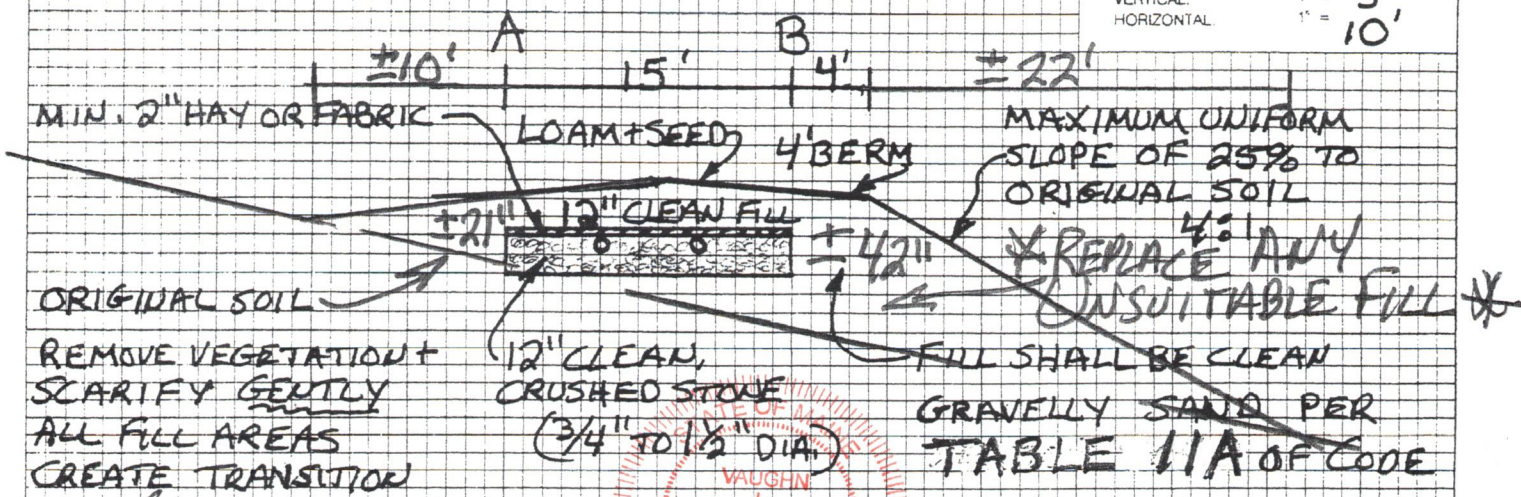 VERTICAL:
HORIZONTAL 1" = 10'
A B
±10' 15' 4' ±22'
MIN. 2" HAY OR FABRIC
LOAM+SEED
4' BERM
MAXIMUM UNIFORM
SLOPE OF 25% TO
ORIGINAL SOIL
4:1
±21"
12" CLEAN FILL
±42"
* REPLACE ANY
UNSUITABLE FILL *
ORIGINAL SOIL
REMOVE VEGETATION +
SCARIFY GENTLY
ALL FILL AREAS
CREATE TRANSITION
12" CLEAN,
CRUSHED STONE
(3/4" TO 1 1/2" DIA.)
FILL SHALL BE CLEAN
GRAVELLY SAND PER
TABLE 11A OF CODE
STATE OF MAINE
VAUGHN